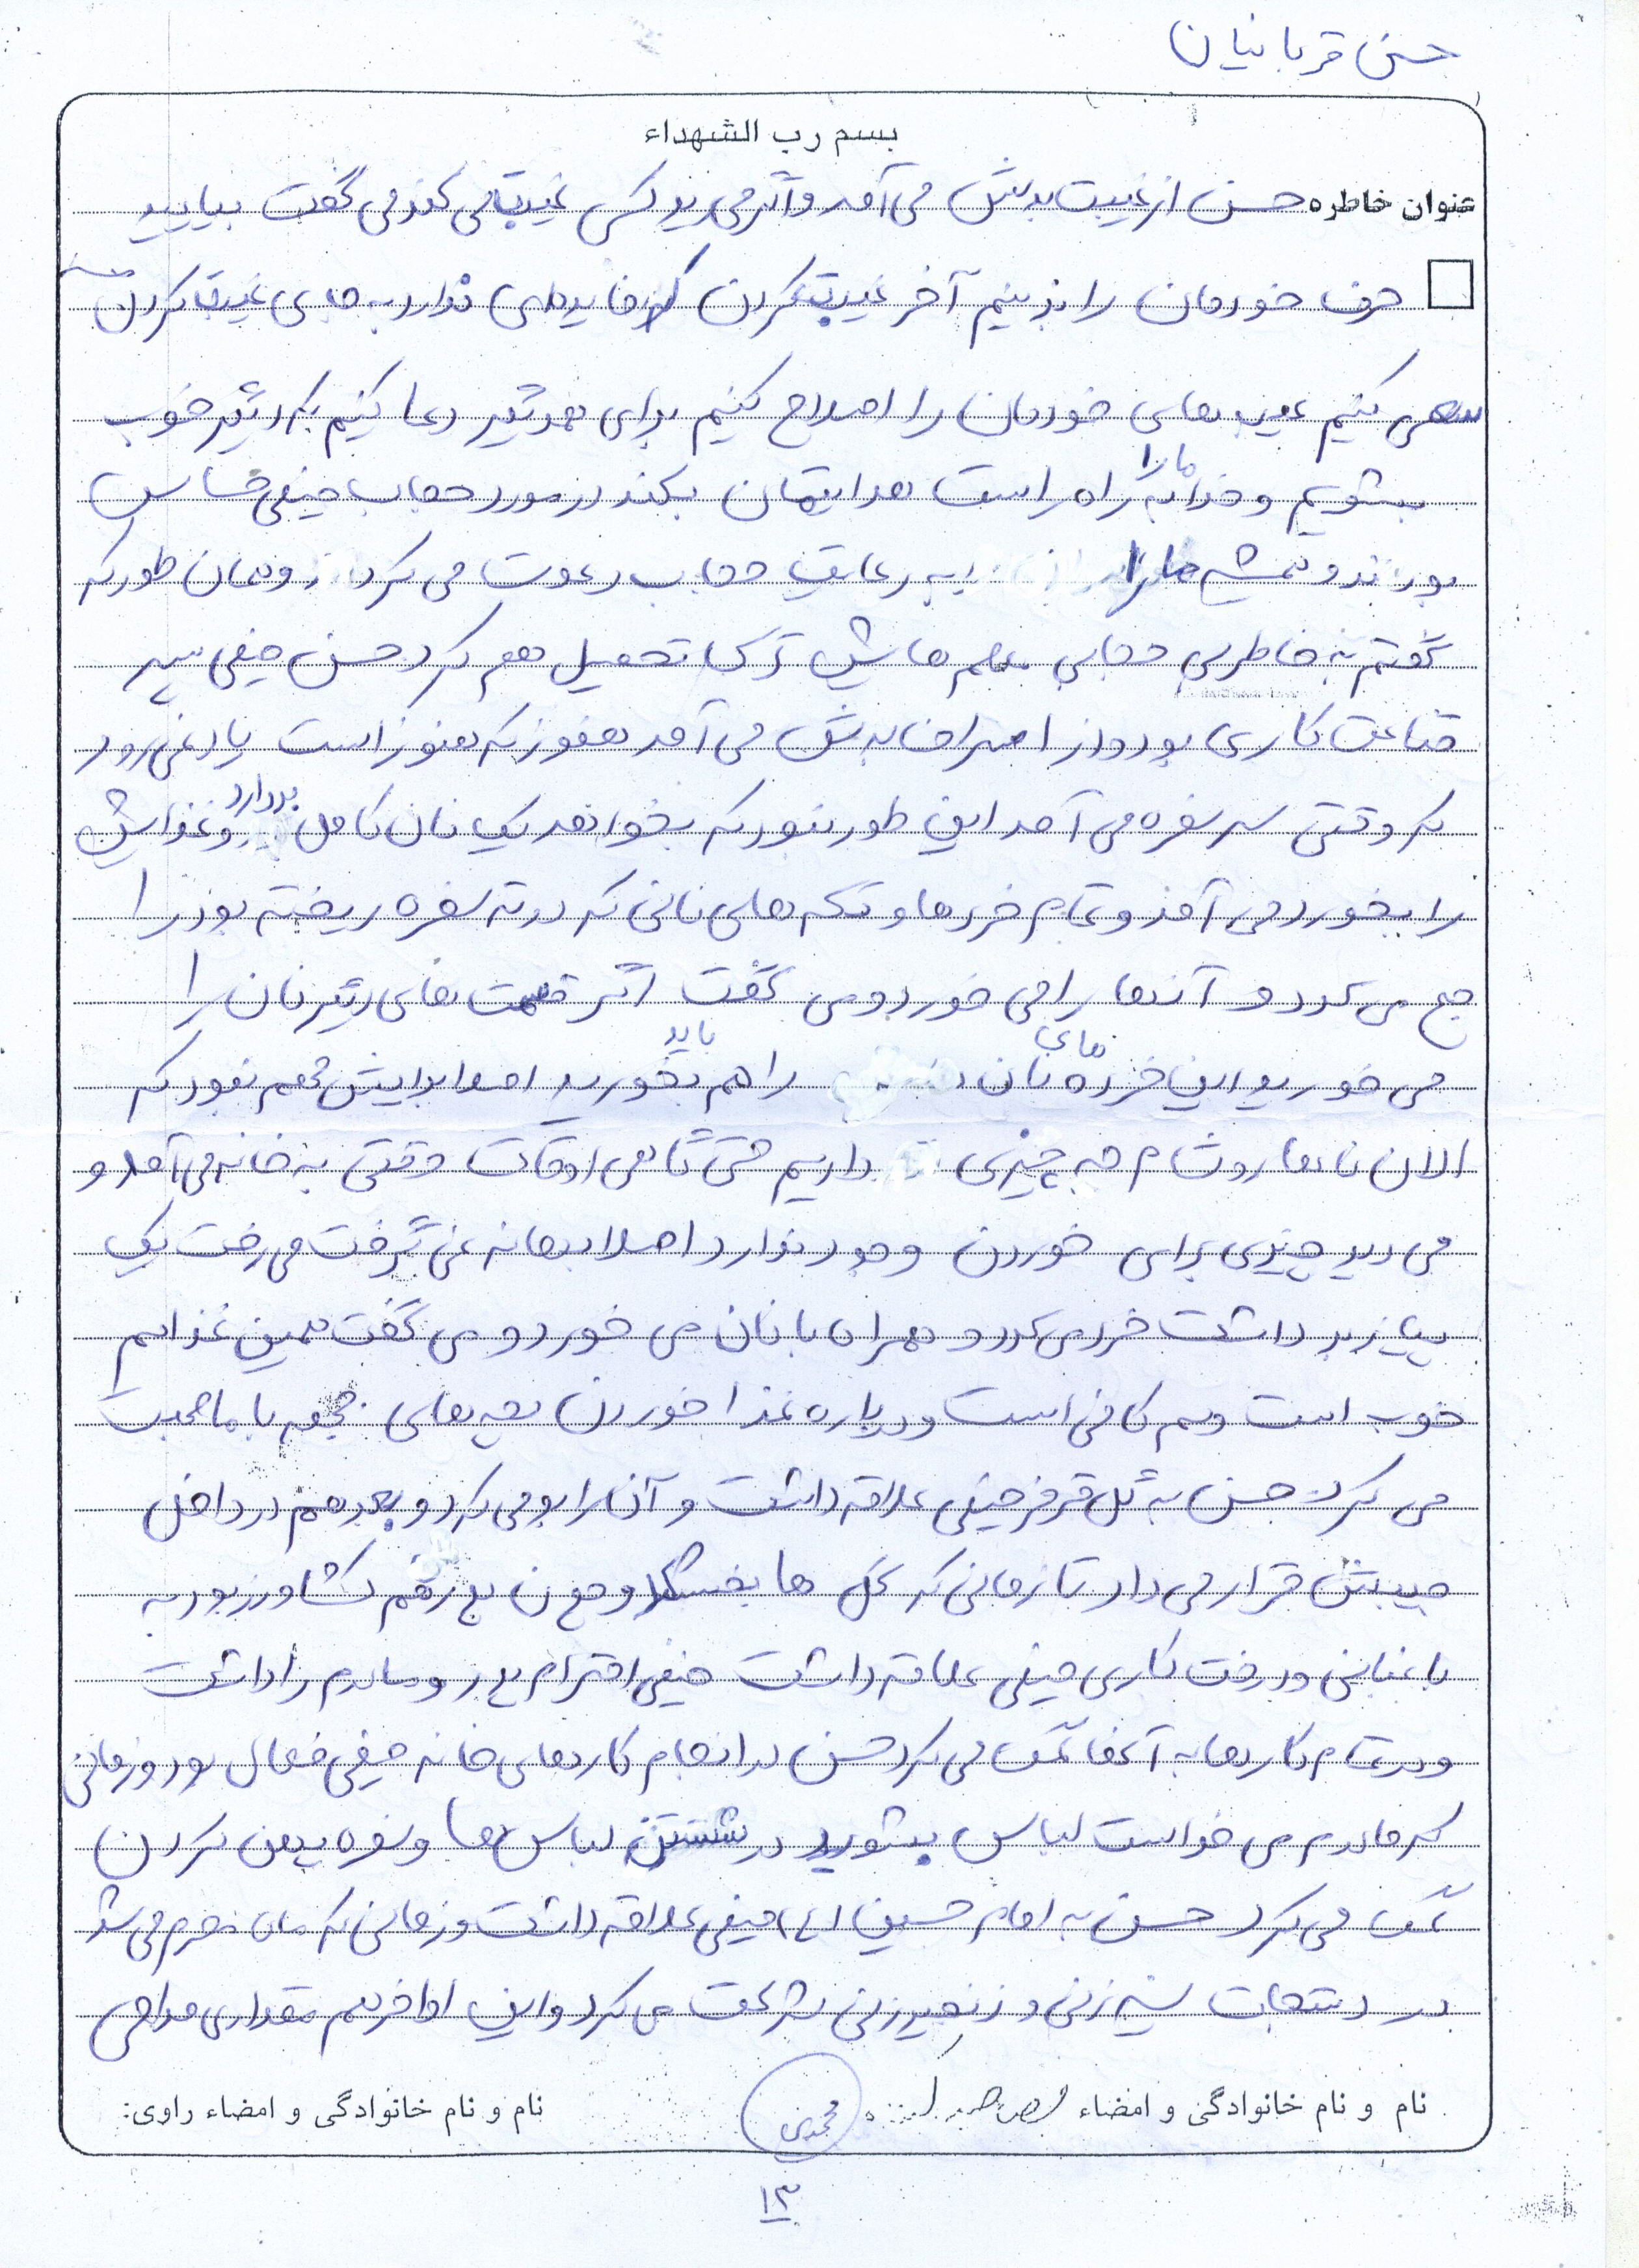 حسن قربانیان
بسم رب الشهداء
عنوان خاطره حسن از غیبت بدش می آمد و اگر می دید کسی غیبت می کند می گفت بیایید
حرف خودمان را بزنیم آخر غیبت کردن که فایده ای ندارد به جای غیبت کردن
سعی کنیم عیب های خودمان را اصلاح کنیم برای همدیگر دعا کنیم که دیگر خوب
بشویم و خدا ما را به راه راست هدایتمان بکند در مورد حجاب خیلی حساس
بودند و همیشه ما را به رعایت حجاب دعوت می کرد و همان طور که
گفتم به خاطر بی حجابی معلم هایش ترک تحصیل هم کرد حسن خیلی پسر
قناعت کاری بود و از اسراف بدش می آمد هنوز که هنوز است یادم نمی رود
که وقتی سر سفره می آمد این طور نبود که بخواهد یک نان کامل بردارد و غذایش
را بخورد می آمد و تمام خرده ها و تکه های نانی که در ته سفره ریخته بود را
جمع می کرد و آنها را می خورد و می گفت اگر قسمت های دیگر نان را
می خورید این خرده های نان را هم باید بخورید اصلا برایش مهم نبود که
الان ناهار و شام چه چیزی داریم حتی گاهی اوقات وقتی به خانه می آمد و
می دید چیزی برای خوردن وجود ندارد اصلا بهانه نمی گرفت می رفت یک
پیاز بر داشت خرد می کرد و همراه با نان می خورد و می گفت همین غذا هم
خوب است و هم کافی است و درباره غذا خوردن بچه های جبهه با ما صحبت
می کرد حسن به گل قرمز خیلی علاقه داشت و آن را بو می کرد و بعد هم در داخل
جیبش قرار می داد تا زمانی که گل ها بخشکد و چون پدرم کشاورز بود به
باغبانی و درخت کاری خیلی علاقه داشت خیلی احترام پدر و مادرم را داشت
و در تمام کارها به آنها کمک می کرد حسن در انجام کارهای خانه خیلی فعال بود و زمانی
که مادرم می خواست لباس بشوید در شستن لباس ها و سفره پهن کردن
کمک می کرد حسن به امام حسین (ع) خیلی علاقه داشت و زمانی که ماه محرم می شد
در دستجات سینه زنی و زنجیر زنی شرکت می کرد و این اواخر هم مقداری مداحی
نام و نام خانوادگی و امضاء مصاحبه کننده محمدی
نام و نام خانوادگی و امضاء راوی:
۱۳